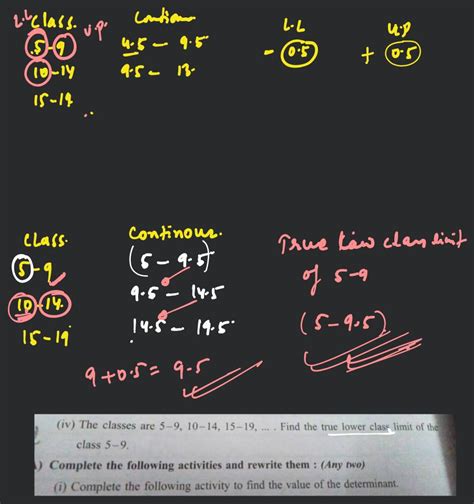 L.L Class. U.P. Continous L.L U.P
5-9 4.5 – 9.5 - 0.5 + 0.5
10-14 9.5 – 13.
15-19
Class. Continous. True Low class limit
5-9 (5 – 9.5) of 5-9
10-14. 9.5 – 14.5 (5-9.5)
15-19 14.5 – 19.5
9+0.5 = 9.5
(iv) The classes are 5–9, 10–14, 15–19, ... . Find the true lower class limit of the
class 5–9.
) Complete the following activities and rewrite them : (Any two)
(i) Complete the following activity to find the value of the determinant.